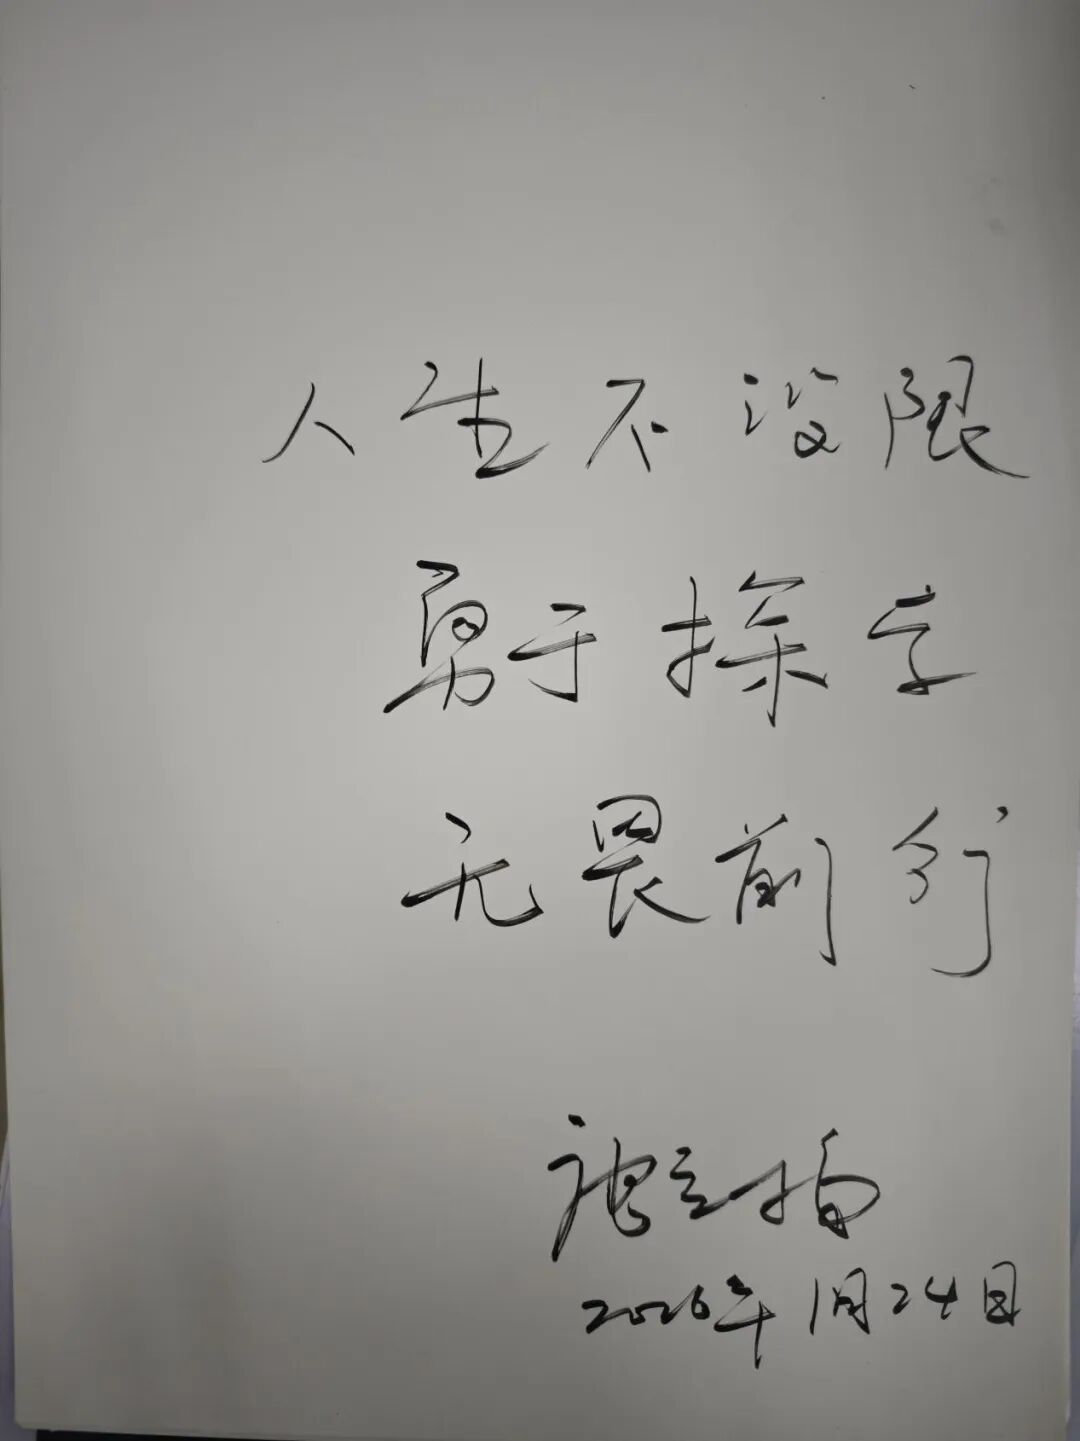 人生不设限
勇于探索
无畏前行
2026年1月24日